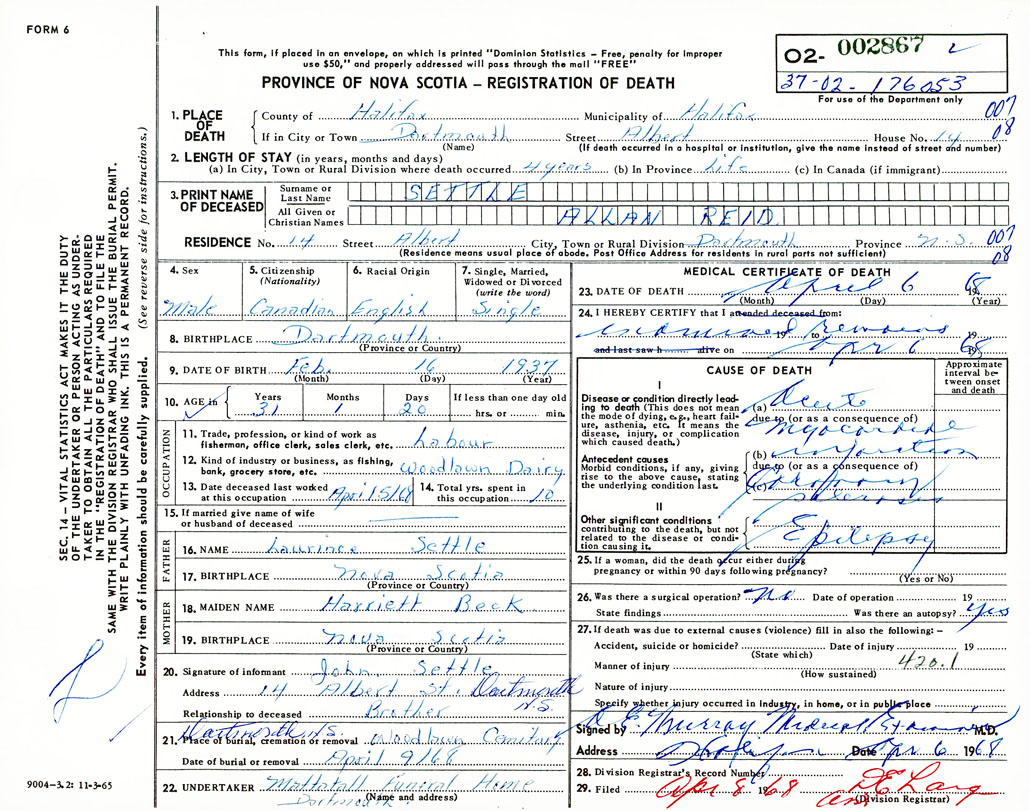 FORM 6
This form, if placed in an envelope, on which is printed "Dominion Statistics – Free, penalty for improper
use $50," and properly addressed will pass through the mail "FREE"
PROVINCE OF NOVA SCOTIA – REGISTRATION OF DEATH
O2- 002867
37-02-176053
For use of the Department only
1. PLACE OF DEATH
County of Halifax Municipality of Halifax 007
If in City or Town Dartmouth Street Albert House No. 14 08
(Name) (If death occurred in a hospital or institution, give the name instead of street and number)
2. LENGTH OF STAY (in years, months and days)
(a) In City, Town or Rural Division where death occurred 4 years (b) In Province Life (c) In Canada (if immigrant)
3. PRINT NAME OF DECEASED
Surname or Last Name SETTLE
All Given or Christian Names ALLAN REID
RESIDENCE No. 14 Street Albert City, Town or Rural Division Dartmouth Province N.S. 007
(Residence means usual place of abode. Post Office Address for residents in rural parts not sufficient) 08
4. Sex
Male
5. Citizenship (Nationality)
Canadian
6. Racial Origin
English
7. Single, Married, Widowed or Divorced (write the word)
Single
8. BIRTHPLACE Dartmouth.
(Province or Country)
9. DATE OF BIRTH Feb. 16 1937
(Month) (Day) (Year)
10. AGE in
Years 31 Months 1 Days 20
If less than one day old
hrs. or min.
OCCUPATION
11. Trade, profession, or kind of work as
fisherman, office clerk, sales clerk, etc. Labour
12. Kind of industry or business, as fishing,
bank, grocery store, etc. Woodlawn Dairy
13. Date deceased last worked
at this occupation April 5/68
14. Total yrs. spent in
this occupation 10
15. If married give name of wife
or husband of deceased
FATHER
16. NAME Laurince Settle
17. BIRTHPLACE Nova Scotia
(Province or Country)
MOTHER
18. MAIDEN NAME Harriett Beck
19. BIRTHPLACE Nova Scotia
(Province or Country)
20. Signature of informant John Settle
Address 14 Albert St. Dartmouth N.S.
Relationship to deceased Brother
Dartmouth N.S.
21. Place of burial, cremation or removal Woodlawn Cemetery
Date of burial or removal April 9/68
22. UNDERTAKER Mattatall Funeral Home
(Name and address)
Dartmouth
MEDICAL CERTIFICATE OF DEATH
23. DATE OF DEATH April 6 1968
(Month) (Day) (Year)
24. I HEREBY CERTIFY that I attended deceased from:
examined remains 19 to 19
and last saw h alive on Apr 6 1968
CAUSE OF DEATH
Approximate interval between onset and death
I
Disease or condition directly leading to death (This does not mean
the mode of dying, e.g., heart failure, asthenia, etc. It means the
disease, injury, or complication
which caused death.)
(a) Acute
due to (or as a consequence of)
myocardial
Antecedent causes
Morbid conditions, if any, giving
rise to the above cause, stating
the underlying condition last.
(b) infarction
due to (or as a consequence of)
(c) Coronary
sclerosis
II
Other significant conditions
contributing to the death, but not
related to the disease or condition causing it.
Epilepsy
25. If a woman, did the death occur either during
pregnancy or within 90 days following pregnancy?
(Yes or No)
26. Was there a surgical operation? No Date of operation 19
State findings Was there an autopsy? Yes
27. If death was due to external causes (violence) fill in also the following: –
Accident, suicide or homicide? Date of injury 19
(State which)
Manner of injury 420.1
(How sustained)
Nature of injury
Specify whether injury occurred in industry, in home, or in public place
Signed by D E Murray Medical Examiner M.D.
Address Halifax Date Apr 6 1968
28. Division Registrar's Record Number
29. Filed Apr 8 1968
(Division Registrar)
9004–3.2: 11-3-65
SEC. 14 – VITAL STATISTICS ACT MAKES IT THE DUTY
OF THE UNDERTAKER OR PERSON ACTING AS UNDERTAKER TO OBTAIN ALL THE PARTICULARS REQUIRED
IN THE "REGISTRATION OF DEATH" AND TO FILE THE
SAME WITH THE DIVISION REGISTRAR WHO SHALL ISSUE THE BURIAL PERMIT.
WRITE PLAINLY WITH UNFADING INK. THIS IS A PERMANENT RECORD.
Every item of information should be carefully supplied. (See reverse side for instructions.)